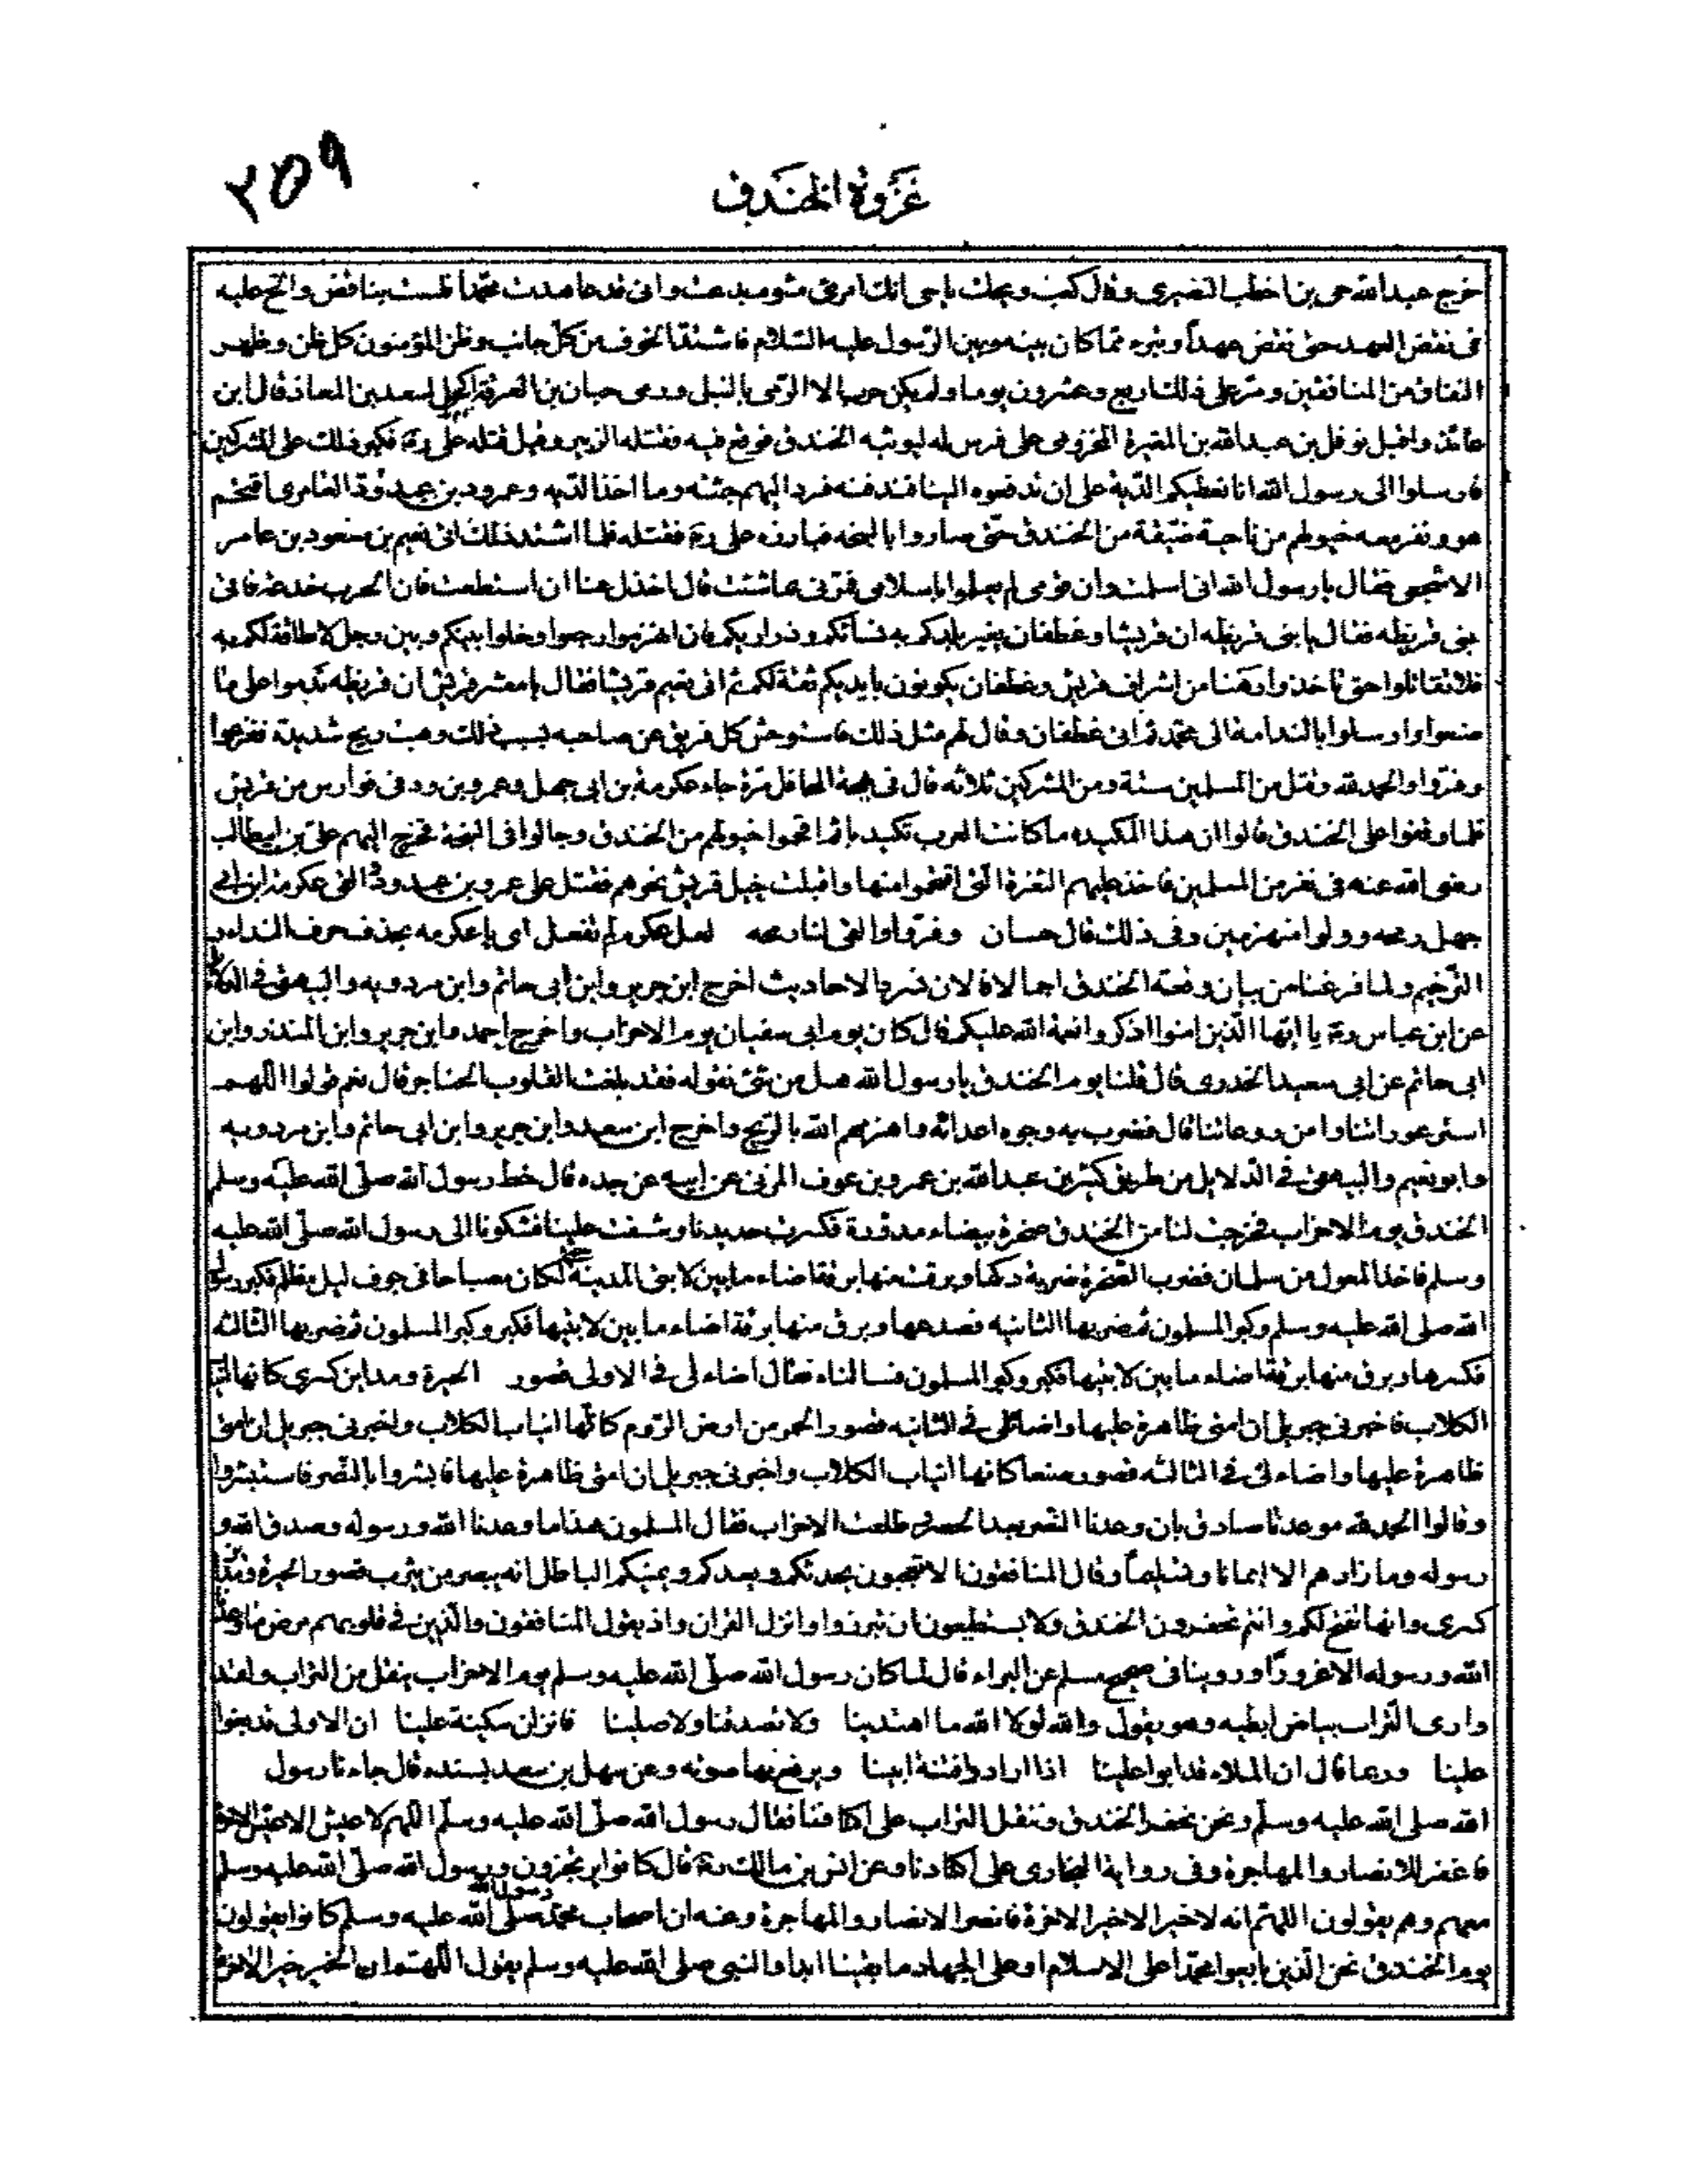 ٢٥٩
غزوة الخندق
خرج عبد الله حي بن اخطب النضيري وقال كعب ويحك يا حي انك امرئ مشوم يدعث واني قد عاهدت محمدا فلست بناقض والح عليه
في نقض العهد حتى نقض عهداً وتبرء مما كان بينه وبين الرسول عليه السلام فاشتد الخوف من كل جانب وظن المؤمنون كل ظن وظهر
النفاق من المنافقين ومر على ذلك اربع وعشرون يوما ولم يكن حربا الا الرمي بالنبل ورمى حبان بن العرقة لسعد بن المعاذ قال ابن
عائذ واقبل نوفل بن عبد الله بن المغيرة المخزومي على فرس له ليوثبه الخندق فوقع فيه فقتله الزبير وقيل قتله علي رض فكبر ذلك على المشركين
فارسلوا الى رسول الله انا نعطيكم الدية على ان تدفعوه الينا فندفنه فرد اليهم جثته وما اخذ الديه وعمرود بن عبد ود العامري اقتحم
هو ونفر معه خيولهم من ناحية ضيقة من الخندق حتى صاروا بالسبخه فبارزه علي رض فقتله فلما اشتد ذلك اتى نعيم بن مسعود بن عامر
الاشجعي فقال يا رسول الله اني اسلمت وان قومي لم يعلموا باسلامي فمرني ما شئت قال اخذل عنا ان استطعت فان الحرب خدعة فاتى
بني قريظه فقال يا بني قريظه ان قريشا وغطفان بغير بلدكم به نسائكم وذراريكم فان انهزموا رجعوا وخلوا بينكم وبين رجل لا طاقة لكم به
فلا تقاتلوا حتى تاخذوا رهنا من اشراف قريش وغطفان يكونون بايديكم ثقة لكم ثم اتى نعيم قريشا فقال يا معشر قريش ان قريظه ندموا على ما
صنعوا وارسلوا بالندامة الى محمد ثم اتى غطفان وقال لهم مثل ذلك فاستوحش كل فريق عن صاحبه بسبب ذلك وهبت ريح شديدة ففزعوا
وفروا والحمد لله وقتل من المسلمين ستة ومن المشركين ثلاثه قال في بهجة المحافل مرة جاء عكرمة بن ابي جهل وعمرو بن ود في فوارس من قريش
فلما وقفوا على الخندق قالوا ان هذا المكيده ما كانت العرب تكيد بها ثم اقحموا خيولهم من الخندق وجالوا في السبخة فخرج اليهم علي بن ابيطالب
رضي الله عنه في نفر من المسلمين فاخذ عليهم الثغرة التي اقتحموا منها واقبلت خيل قريش نحوهم فقتل علي عمرو بن عبد ود والقى عكرمة ابن ابي
جهل رمحه وولوا منهزمين وفي ذلك قال حسان وفر والقى لنا رمحه لعل عكرم لم تفعل اى يا عكرمه بحذف حرف النداء و
الترخيم ولما فرغنا من بيان وقعة الخندق اجمالا فالان نسرد بالاحاديث اخرج ابن جرير وابن ابي حاتم وابن مردويه والبيهقي في الدلائل
عن ابن عباس رض يا ايها الذين امنوا اذكروا نعمة الله عليكم قال كان يوم ابي سفيان يوم الاحزاب واخرج احمد وابن جرير وابن المنذر وابن
ابي حاتم عن ابي سعيد الخدري قال قلنا يوم الخندق يا رسول الله هل من شئ نقوله فقد بلغت القلوب الحناجر قال نعم قولوا اللهم
استر عوراتنا وامن روعاتنا قال فضرب به وجوه اعدائه واهزمهم الله بالريح واخرج ابن سعد وابن جرير وابن ابي حاتم وابن مردويه
وابو نعيم والبيهقي في الدلايل من طريق كثير بن عبد الله بن عمرو بن عوف المزني عن ابيه عن جده قال خط رسول الله صلى الله عليه وسلم
الخندق يوم الاحزاب فخرجت لنا من الخندق صخرة بيضاء مدورة فكسرت حديدنا وشقت علينا فشكونا الى رسول الله صلى الله عليه
وسلم فاخذ المعول من سلمان فضرب الصخرة ضربة دكها وبرقت منها برقة اضاء ما بين لابتي المدينه حتى لكان مصباحا في جوف ليل مظلم فكبر رسول
الله صلى الله عليه وسلم وكبر المسلمون ثم ضربها الثانيه فصدعها وبرق منها برقة اضاء ما بين لابتيها فكبر وكبر المسلمون ثم ضربها الثالثه
فكسرها وبرق منها برقة اضاء ما بين لابتيها فكبر وكبر المسلمون فسالناه فقال اضاء لي في الاولى قصور الحيرة ومداين كسرى كانها انياب
الكلاب فاخبرني جبريل ان امتي ظاهرة عليها واضاء لي في الثانيه قصور الحمر من ارض الروم كانها انياب الكلاب واخبرني جبريل ان امتي
ظاهرة عليها واضاء لي في الثالثه قصور صنعا كانها انياب الكلاب واخبرني جبريل ان امتي ظاهرة عليها فابشروا بالنصر فاستبشروا
وقالوا الحمد لله موعد نا صادق بان وعدنا النصر بعد الحصر ثم طلعت الاحزاب فقال المسلمون هذا ما وعدنا الله ورسوله وصدق الله و
رسوله وما زادهم الا ايمانا وتسليماً وقال المنافقون الا تعجبون يحدثكم ويعدكم ويمنيكم الباطل انه يبصر من يثرب قصور الحيرة ومداين
كسرى وانها تفتح لكم وانتم تحفرون الخندق ولا يستطيعون ان تبرزوا وانزل القران واذ يقول المنافقون والذين في قلوبهم مرض ما وعدنا
الله ورسوله الا غروراً وروينا في صحيح مسلم عن البراء قال لما كان رسول الله صلى الله عليه وسلم يوم الاحزاب ينقل من التراب ولقد
وارى التراب بياض ابطيه وهو يقول والله لولا الله ما اهتدينا ولا تصدقنا ولا صلينا فانزلن سكينة علينا ان الاولى قد بغوا
علينا وربما قال ان الملاء قد ابوا علينا اذا ارادوا فتنة ابينا ويرفع بها صوته وعن سهل بن سعد بسنده قال جاءنا رسول
الله صلى الله عليه وسلم ونحن نحفر الخندق وننقل التراب على اكتافنا فقال رسول الله صلى الله عليه وسلم اللهم لا عيش الا عيش الاخرة
فاغفر للانصار والمهاجرة وفي رواية البخاري على اكتادنا وعن انس بن مالك رض قال كانوا يرتجزون ورسول الله صلى الله عليه وسلم
معهم وهم يقولون اللهم انه لا خير الا خير الاخرة فانصر الانصار والمهاجرة وعنه ان اصحاب محمد رسول الله صلى الله عليه وسلم كانوا يقولون
يوم الخندق نحن الذين بايعوا محمدا على الاسلام او على الجهاد ما بقينا ابدا والنبي صلى الله عليه وسلم يقول اللهم ان الخير خير الاخرة